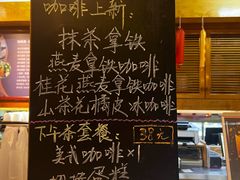 咖啡上新:
抹茶拿铁
燕麦拿铁咖啡
桂花燕麦拿铁咖啡
山茶花橘皮冰咖啡
下午茶套餐: 38元
美式咖啡×1